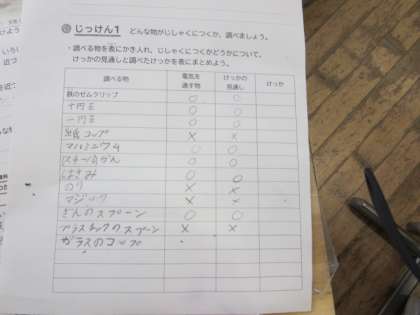 じっけん1 どんな物がじしゃくにつくか、調べましょう。
・調べる物を表にかき入れ、じしゃくにつくかどうかについて、
けっかの見通しと調べたけっかを表にまとめよう。
調べる物 電気を通す物 けっかの見通し けっか
鉄のゼムクリップ ○ ○
十円玉 ○ ○
一円玉 ○ ○
紙コップ × ×
アルミニウム ○ ○
スチールかん ○ ○
はさみ ○ ○
のり × ×
マジック × ×
ぎんのスプーン ○ ○
プラスチックのスプーン × ×
ガラスのコップ